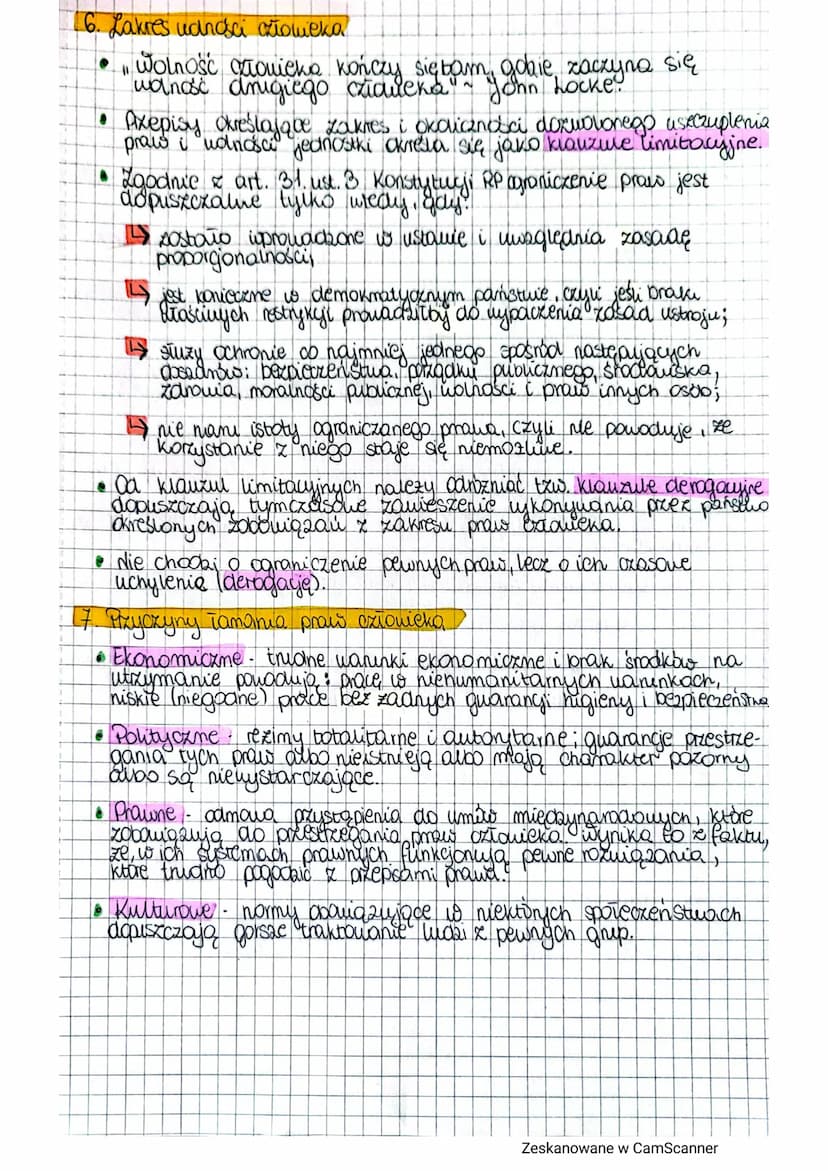 6. Zakres wolności człowieka
• „Wolność człowieka kończy się tam, gdzie zaczyna się
wolność drugiego człowieka" ~ John Locke.
• Przepisy określające zakres i okoliczności dozwolonego uszczuplenia
praw i wolności jednostki określa się jako klauzule limitacyjne.
• Zgodnie z art. 31. ust. 3 Konstytucji RP ograniczenie praw jest
dopuszczalne tylko wtedy, gdy:
↳ zostało wprowadzone w ustawie i uwzględnia zasadę
proporcjonalności,
↳ jest konieczne w demokratycznym państwie, czyli jeśli brak
właściwych restrykcji prowadziłby do wypaczenia zasad ustroju;
↳ służy ochronie co najmniej jednego spośród następujących
: bezpieczeństwa, porządku publicznego, środowiska,
zdrowia, moralności publicznej, wolności i praw innych osób;
↳ nie istoty ograniczanego prawa, czyli nie powoduje, że
korzystanie z niego staje się niemożliwe.
• Od klauzul limitacyjnych należy odróżniać tzw. klauzule derogacyjne
dopuszczają tymczasowe zawieszenie wykonywania przez państwo
określonych zobowiązań z zakresu praw człowieka.
• Nie chodzi o ograniczenie pewnych praw, lecz o ich czasowe
uchylenie (derogację).
7. Przyczyny łamania praw człowieka
• Ekonomiczne - trudne warunki ekonomiczne i brak środków na
utrzymanie powodują: pracę w niehumanitarnych warunkach,
niskie (niegodne) płace bez żadnych gwarancji higieny i bezpieczeństwa
• Polityczne - reżimy totalitarne i autorytarne; gwarancje przestrze-
gania tych praw albo nie istnieją albo mają charakter pozorny
albo są niewystarczające.
• Prawne - odmowa przystąpienia do umów międzynarodowych, które
zobowiązują do przestrzegania praw człowieka. Wynika to z faktu,
że, w ich systemach prawnych funkcjonują pewne rozwiązania,
które trudno pogodzić z przepisami prawa.
• Kulturowe - normy obowiązujące w niektórych społeczeństwach
dopuszczają gorsze traktowanie ludzi z pewnych grup.
Zeskanowane w CamScanner